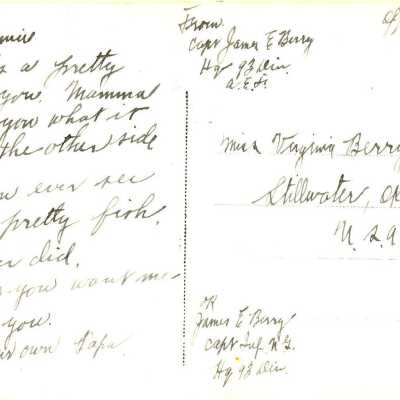 s a pretty
you. Mamma
you what it
the other side
u ever see
pretty fish.
r did.
you want me
you.
own Papa.
From
Capt James E Berry
Hq 93 Div.
A.E.F.
Miss Virginia Berry
Stillwater, O
U.S.A
OK
James E Berry
Capt Inf. N.G.
Hq 93 Div